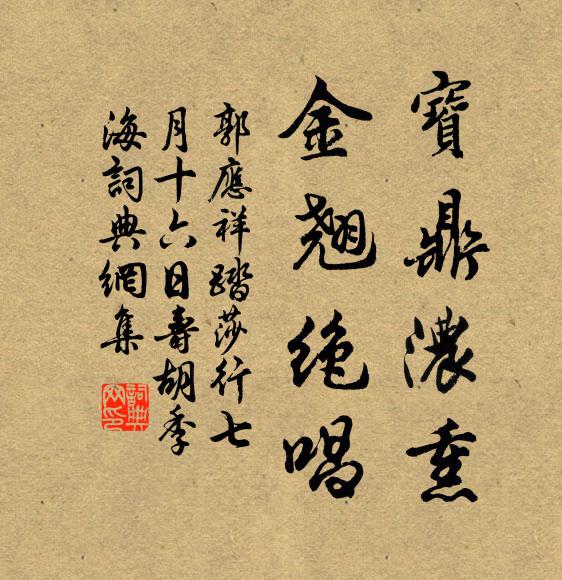 寶鼎濃熏
金翹绝唱
郭應祥踏莎行七
月十六日壽胡季
海詞典網集
詞典
网印